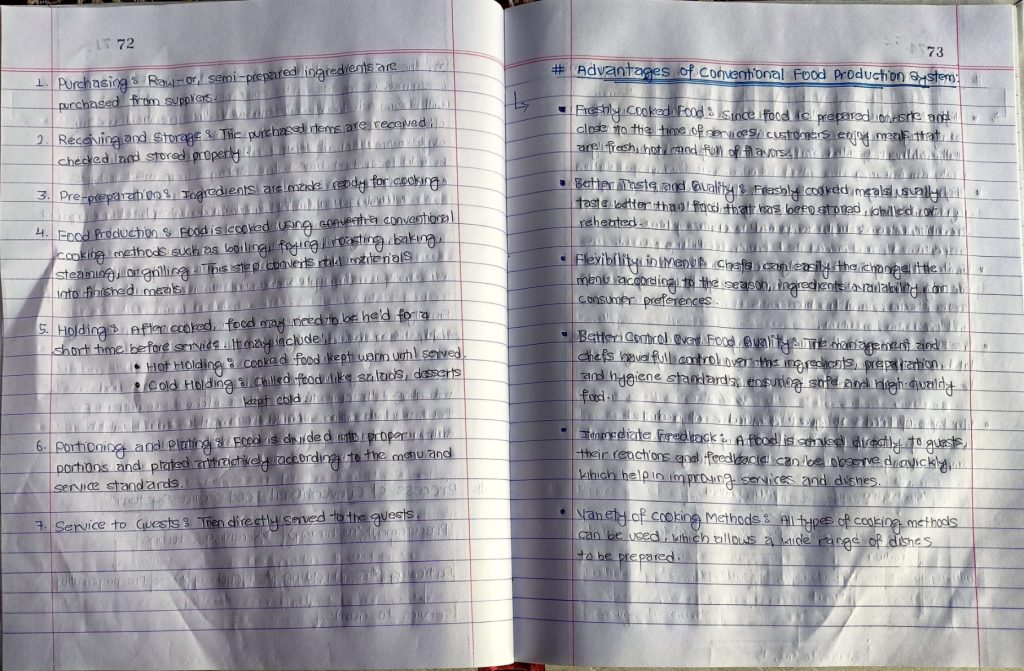 72
1. Purchasing : Raw-or, semi-prepared ingredients are
purchased from suppliers.
2. Receiving and storage : The purchased items are received,
checked and stored properly.
3. Pre-preparation : Ingredients are made ready for cooking.
4. Food Production : Food is cooked using conventional
cooking methods such as boiling, frying, roasting, baking,
steaming, or grilling. This step converts raw materials
into finished meals.
5. Holding : After cooked, food may need to be held for a
short time before service. It may include,
• Hot Holding : cooked food kept warm until served.
• Cold Holding : chilled food like salads, desserts
kept cold.
6. Portioning and Plating : Food is divided into proper
portions and plated attractively according to the menu and
service standards.
7. Service to Guests : Then directly served to the guests.
73
# Advantages of Conventional Food Production System:
• Freshly cooked Food : Since food is prepared on-site and
close to the time of services, customers enjoy meals that
are fresh, hot, and full of flavors.
• Better Taste and Quality : Freshly cooked meals usually
taste better than food that has been stored, chilled or
reheated.
• Flexibility in Menu : Chefs can easily the change the
menu according to the season, ingredients availability, or
consumer preferences.
• Better Control Over Food Quality : The management and
chefs have full control over the ingredients, preparation,
and hygiene standards, ensuring safe and high-quality
food.
• Immediate Feedback : A food is served directly to guests,
their reactions and feedback can be observed quickly,
which help in improving services and dishes.
• Variety of Cooking Methods : All types of cooking methods
can be used, which allows a wide range of dishes
to be prepared.